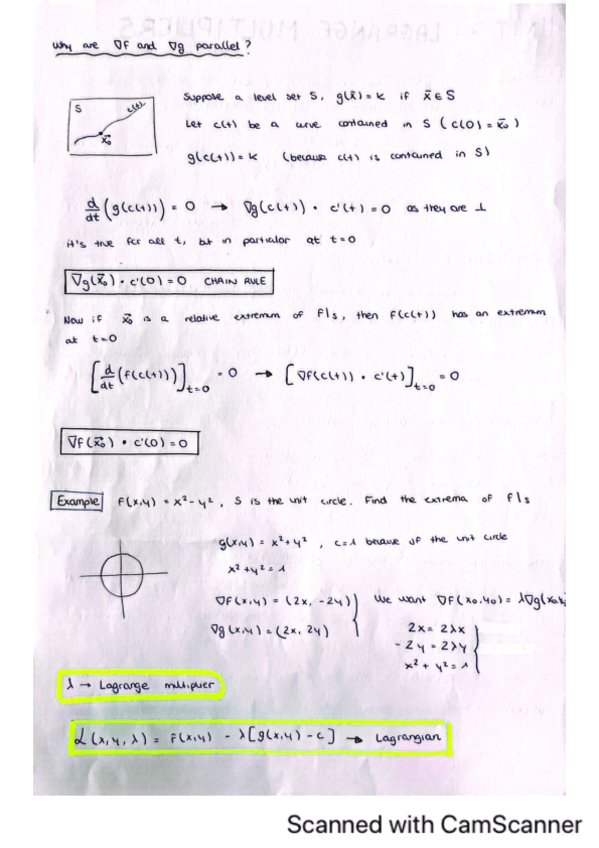 Why are ∇f and ∇g parallel?
Suppose a level set S, g(x̄)=k if x̄ ∈ S
S
c(t)
x̄₀
Let c(t) be a curve contained in S (c(0) = x̄₀)
g(c(t)) = k (because c(t) is contained in S)
d/dt (g(c(t))) = 0 → ∇g(c(t)) · c'(t) = 0 as they are ⊥
it's true for all t, but in particular at t=0
∇g(x̄₀) · c'(0) = 0 CHAIN RULE
Now if x̄₀ is a relative extremum of f|s, then f(c(t)) has an extremum
at t=0
[d/dt (f(c(t)))]t=0 = 0 → [∇f(c(t)) · c'(t)]t=0 = 0
∇f(x̄₀) · c'(0) = 0
Example f(x,y) = x² - y², S is the unit circle. Find the extrema of f|s
g(x,y) = x² + y², c=1 because of the unit circle
x² + y² = 1
∇f(x,y) = (2x, -2y)
We want ∇f(x₀,y₀) = λ∇g(x₀,y
∇g(x,y) = (2x, 2y)
2x = 2λx
-2y = 2λy
x² + y² = 1
λ → Lagrange multiplier
L(x,y,λ) = f(x,y) - λ[g(x,y) - c] → Lagrangian
Scanned with CamScanner